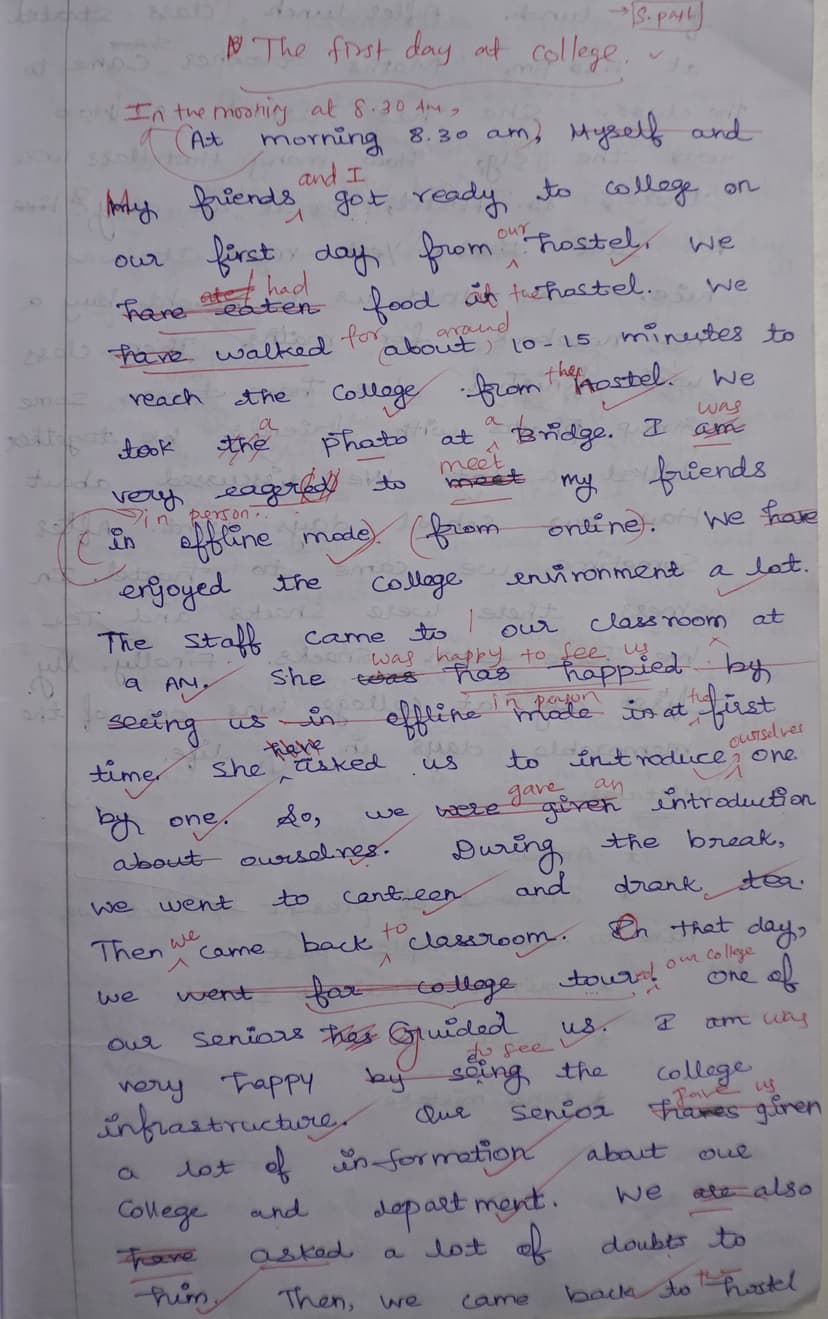 → S. past
The first day at college.
In the morning at 8.30 Am,
(At morning 8.30 am), Myself and
and I
My friends got ready to college on
our
our first day from hostel. We
ate/ had
have eaten food in the hostel. We
for around
have walked (about) 10-15 minutes to
the
reach the college from hostel. We
a a was
took the photo at Bridge. I am
meet
very eagered to meet my friends
in person.
(in offline mode) (from online). We have
enjoyed the college environment a lot.
The staff came to our classroom at
was happy to see us
9 AM. She was has happied by
in person the
seeing us in offline mode in at first
have ourselves
time. She asked us to introduce, one
gave an
by one. So, we were given introduction
about ourselves. During the break,
we went to canteen and drank tea.
we to
Then came back classroom. On that day,
our college
we went for college toured. One of
our seniors has Guided us. I am was
to see
very happy by seing the college
gave us
infrastructure. Our senior has given
a lot of information about our
college and department. We are also
have asked a lot of doubts to
the
him. Then, we came back to hostel